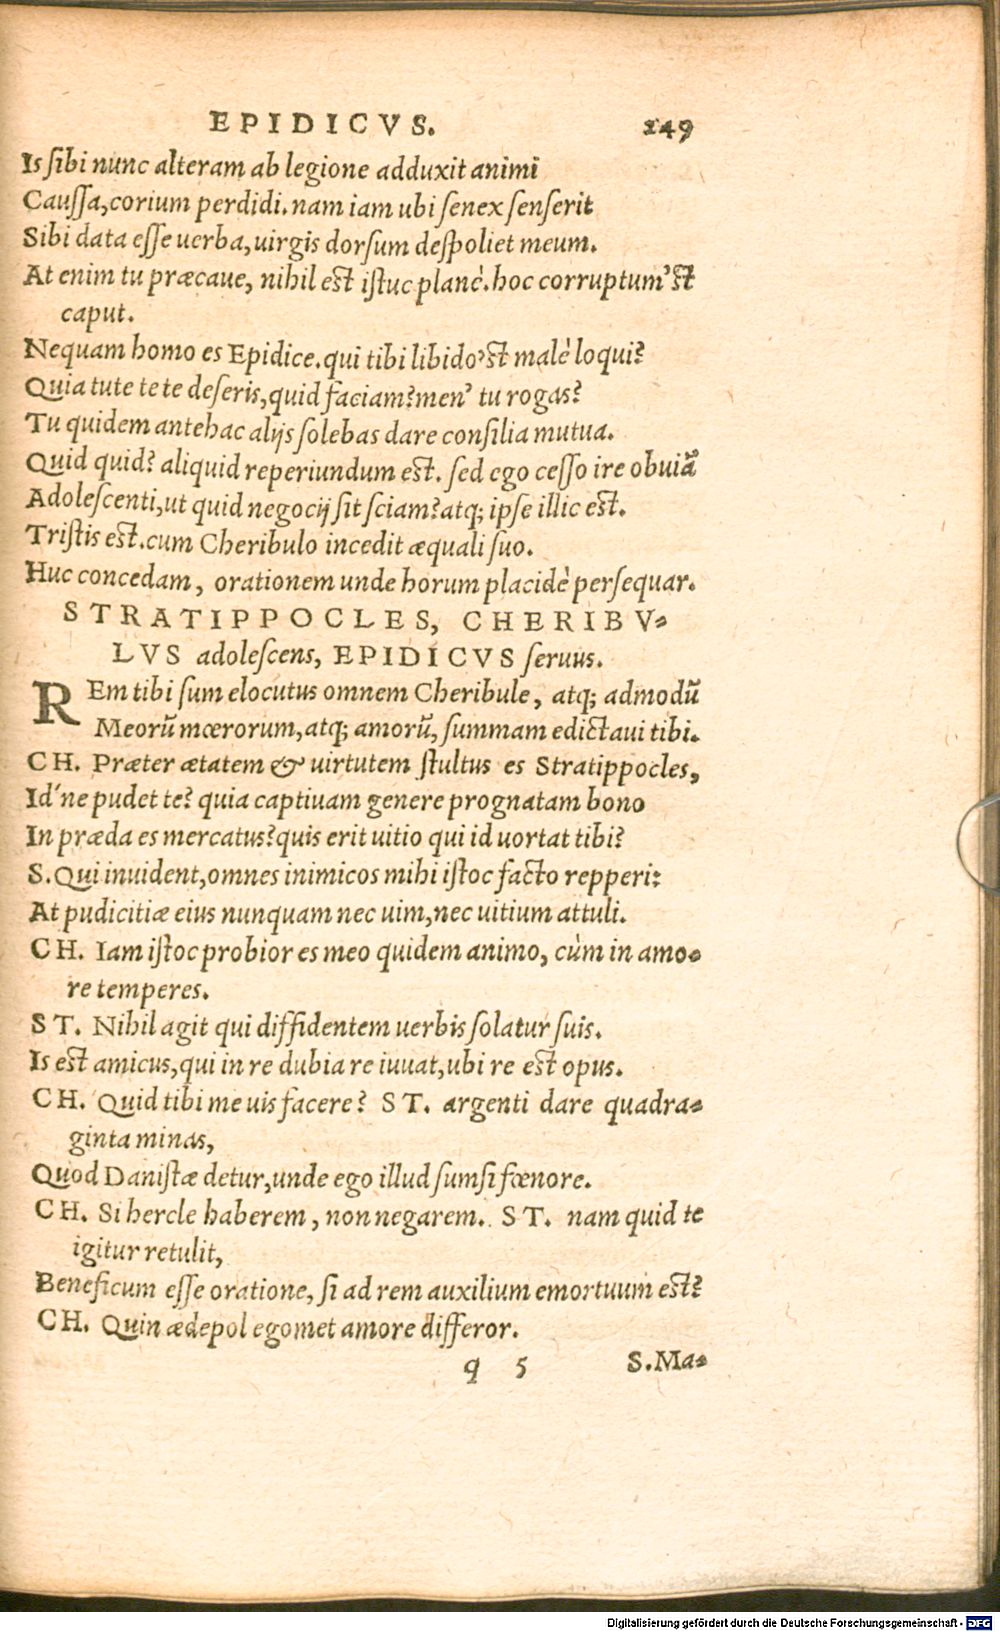 EPIDICVS. 249
Is ſibi nunc alteram ab legione adduxit animi
Cauſſa,corium perdidi.nam iam ubi ſenex ſenſerit
Sibi data eſſe uerba,uirgis dorſum deſpoliet meum.
At enim tu præcaue, nihil est iſtuc planè.hoc corruptum'st
caput.
Nequam homo es Epidice.qui tibi libido'st malè loqui?
Quia tute te te deſeris,quid faciam?men' tu rogas?
Tu quidem antehac alijs ſolebas dare conſilia mutua.
Quid quid? aliquid reperiundum est. ſed ego ceſſo ire obuiã
Adoleſcenti,ut quid negocij ſit ſciam?atq; ipſe illic est.
Triſtis est.cum Cheribulo incedit æquali ſuo.
Huc concedam, orationem unde horum placidè perſequar.
STRATIPPOCLES, CHERIBV-
LVS adoleſcens, EPIDICVS ſeruus.
REm tibi ſum elocutus omnem Cheribule, atq; admodũ
Meorũ mœrorum,atq; amorũ, ſummam edictaui tibi.
CH. Præter ætatem & uirtutem ſtultus es Stratippocles,
Id'ne pudet te? quia captiuam genere prognatam bono
In præda es mercatus?quis erit uitio qui id uortat tibi?
S.Qui inuident,omnes inimicos mihi iſtoc facto repperi:
At pudicitiæ eius nunquam nec uim,nec uitium attuli.
CH. Iam iſtoc probior es meo quidem animo, cùm in amo-
re temperes.
ST. Nihil agit qui diffidentem uerbis ſolatur ſuis.
Is est amicus,qui in re dubia re iuuat,ubi re est opus.
CH. Quid tibi me uis facere? ST. argenti dare quadra-
ginta minas,
Quod Daniſtæ detur,unde ego illud ſumſi fœnore.
CH. Si hercle haberem, non negarem. ST. nam quid te
igitur retulit,
Beneficum eſſe oratione, ſi ad rem auxilium emortuum est?
CH. Quin ædepol egomet amore differor.
q 5 S.Ma-
Digitalisierung gefördert durch die Deutsche Forschungsgemeinschaft - DFG